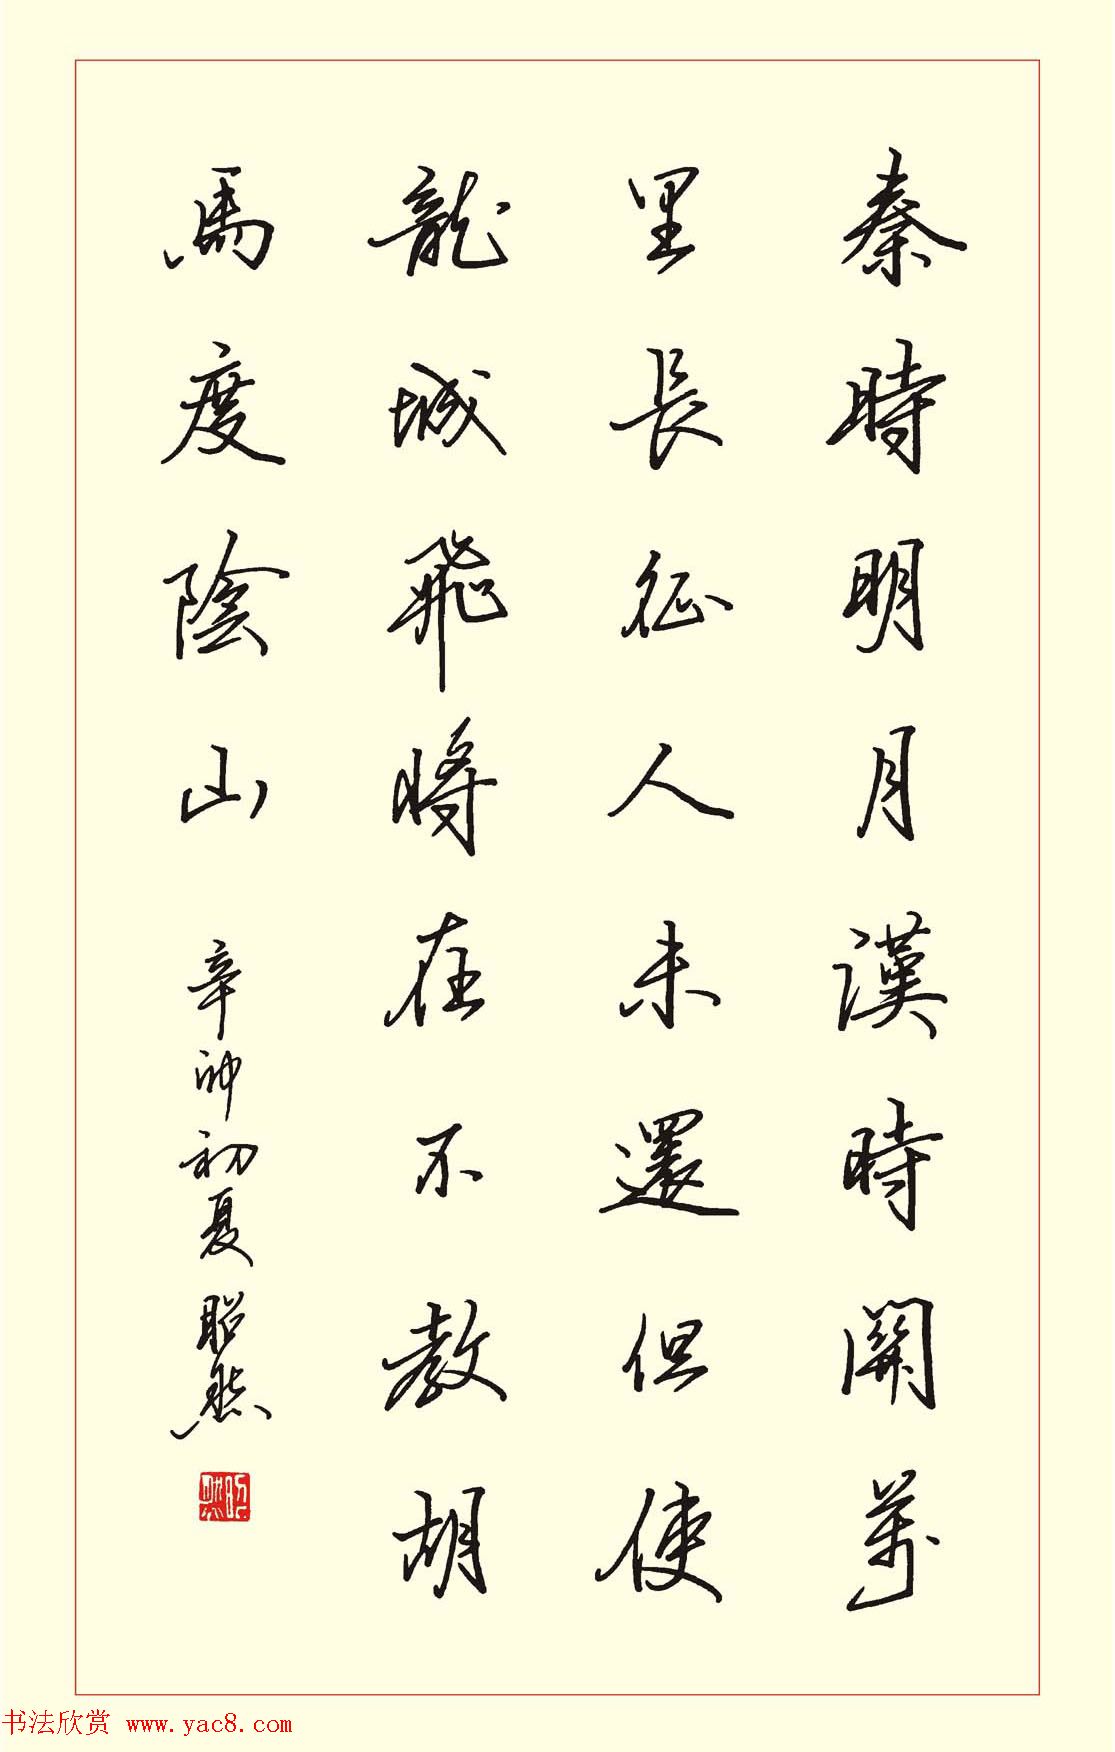 秦時明月漢時關萬
里長征人未還但使
龍城飛將在不教胡
馬度陰山
辛卯初夏 昭然
书法欣赏 www.yac8.com